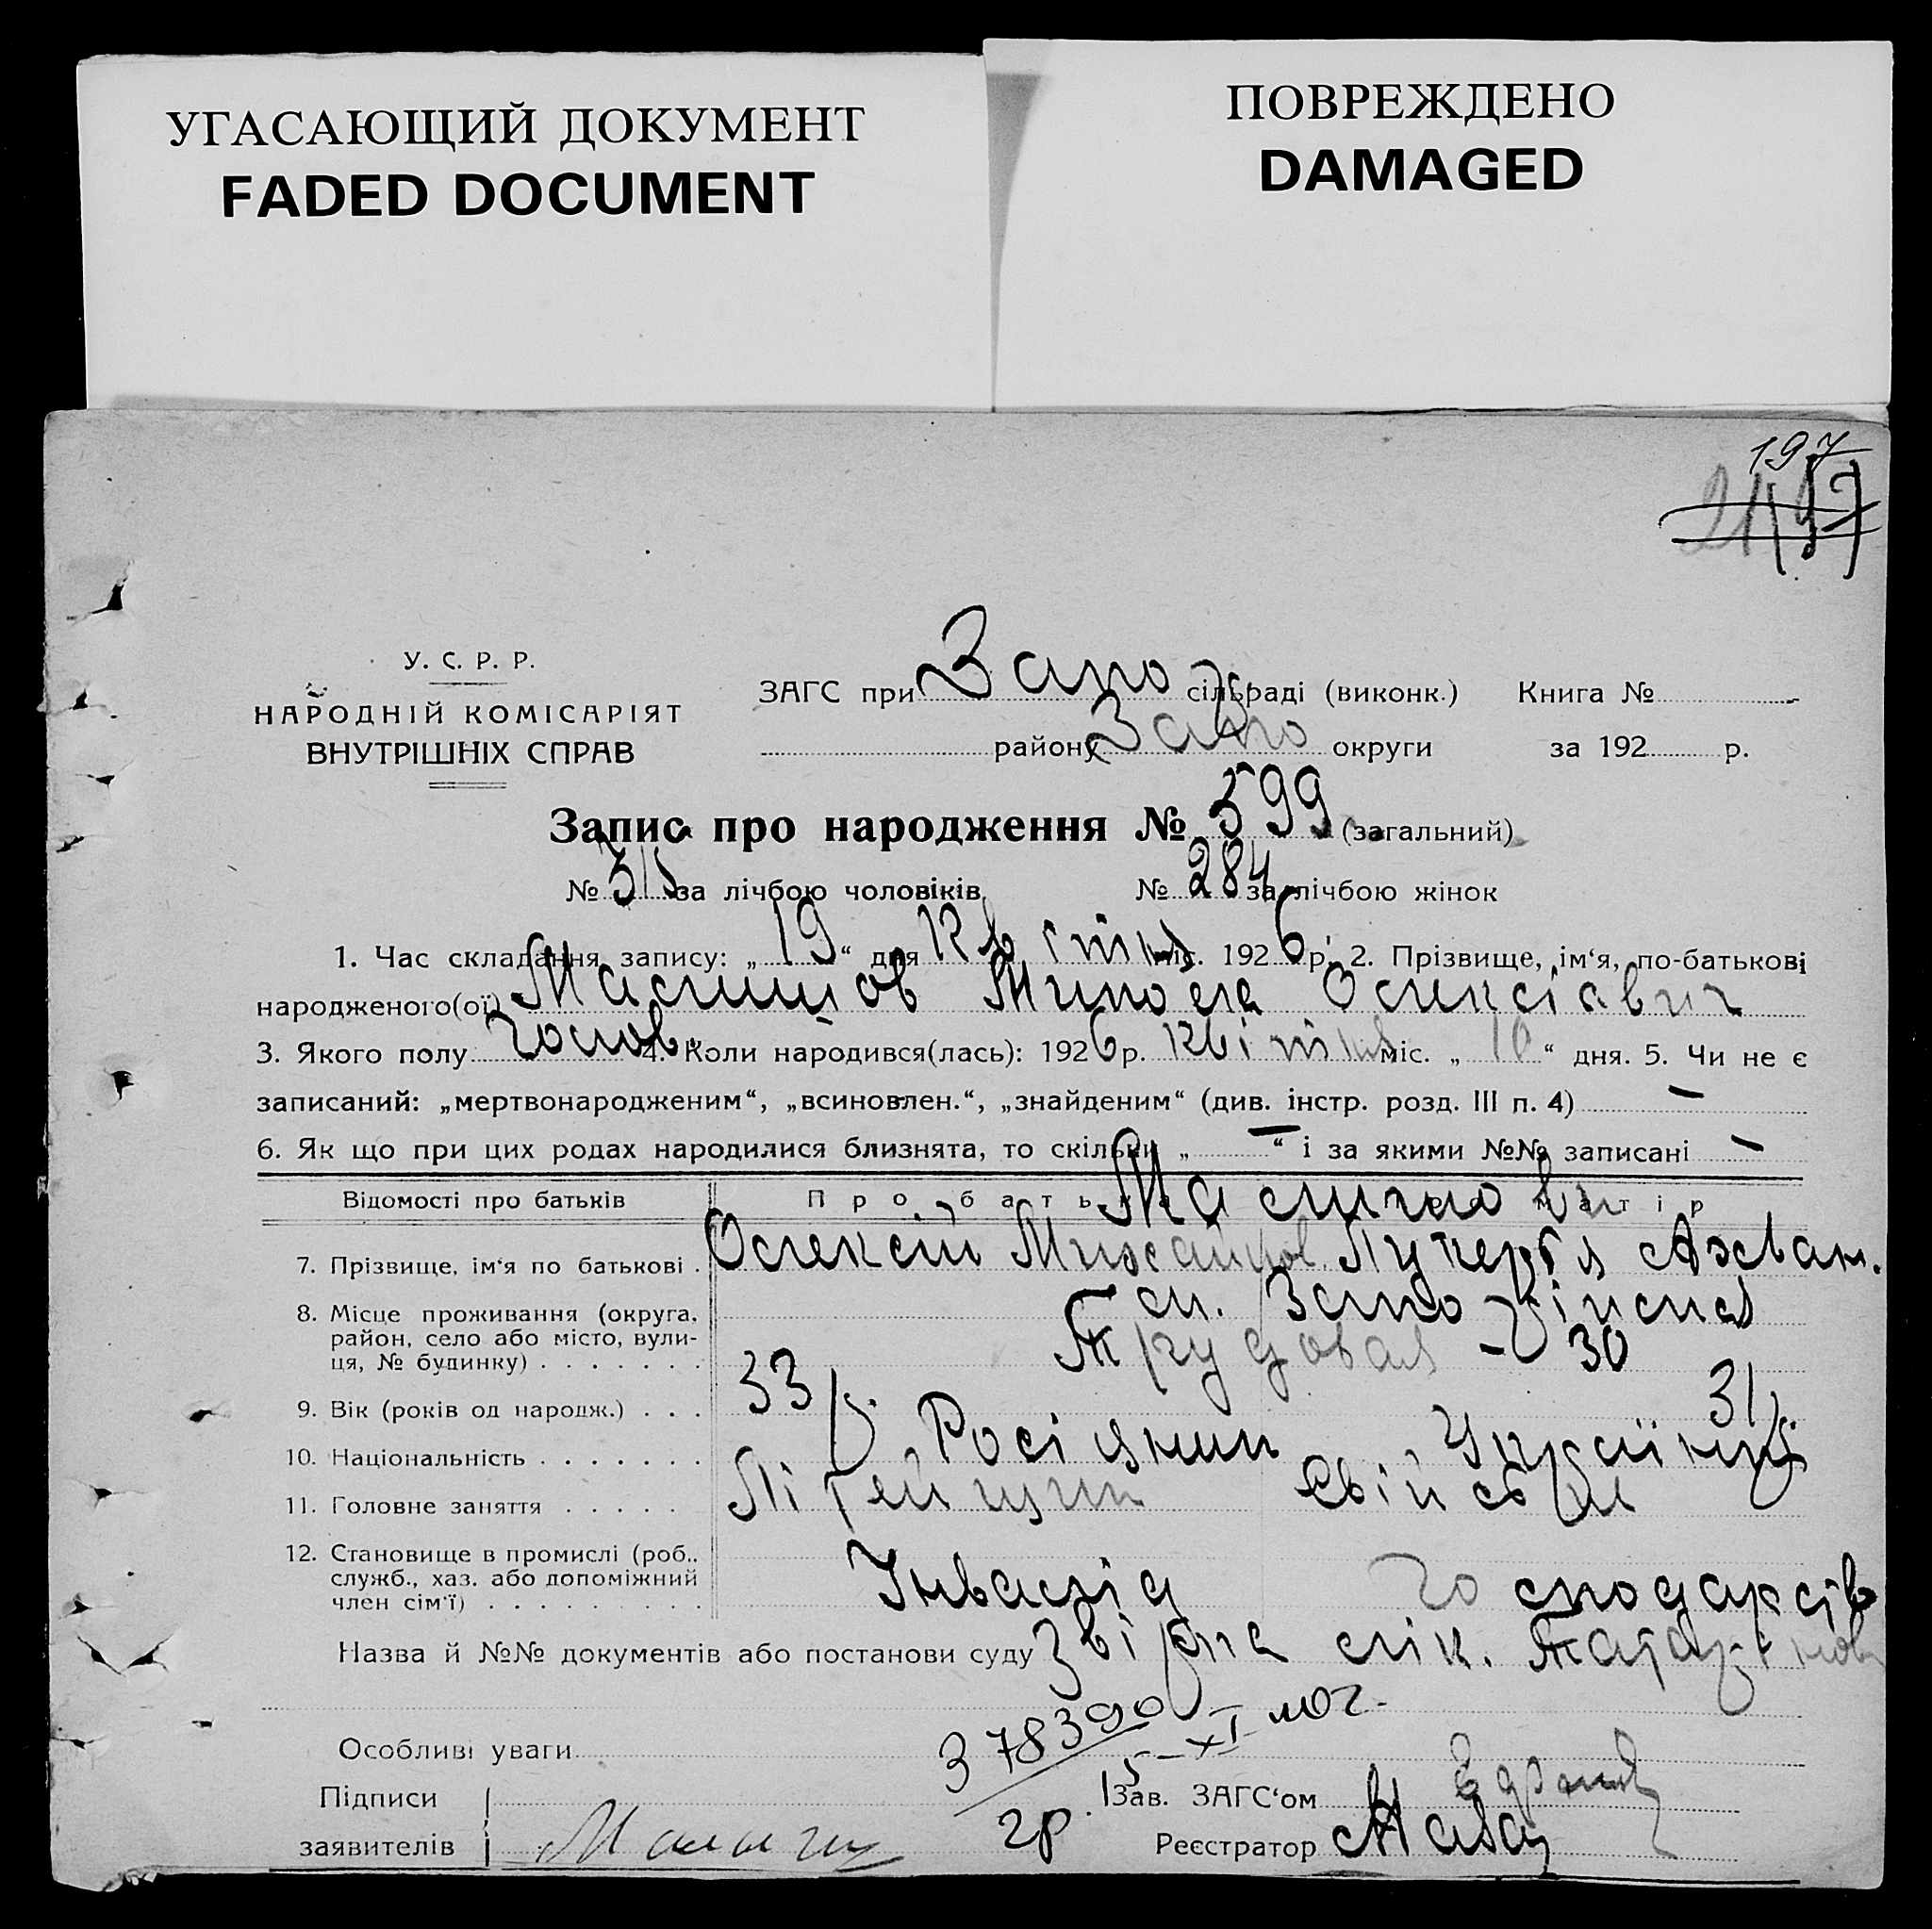 УГАСАЮЩИЙ ДОКУМЕНТ
FADED DOCUMENT
ПОВРЕЖДЕНО
DAMAGED
197
У. С. Р. Р.
НАРОДНІЙ КОМІСАРІЯТ
ВНУТРІШНІХ СПРАВ
ЗАГС при Запо сільраді (виконк.) Книга №
району Запо округи за 192 р.
Запис про народження № 599 (загальний)
№ 315 за лічбою чоловіків № 284 за лічбою жінок
1. Час складання запису: „ 19 “ дня Квітня міс. 192 6 р. 2. Прізвище, ім‘я, по-батькові
народженого(ої) Олексіавич
3. Якого полу Чолов. 4. Коли народився(лась): 192 6 р. квітня міс. „ 10 “ дня. 5. Чи не є
записаний: „мертвонародженим“, „всиновлен.“, „знайденим“ (див. інстр. розд. III п. 4) —
6. Як що при цих родах народилися близнята, то скільки „ — “ і за якими №№ записані —
Відомості про батьків Про батька матір
7. Прізвище, ім‘я по батькові . Олексій Михайлов. Лукерія
8. Місце проживання (округа, район, село або місто, вулиця, № будинку) . . . . . . . ст. Запоріжжя
Трудовая - 30
9. Вік (років од народж.) . . . 33 р. 31 р.
10. Національність . . . . . . . Росіянин Українка
11. Головне заняття . . . . . Літейщик
12. Становище в промислі (роб.,
служб., хаз. або допоміжний
член сім‘ї) . . . . . . . . . Інвалід господарств
Назва й №№ документів або постанови суду лік.
378390
15-XI
Особливі уваги
Підписи Зав. ЗАГС‘ом
заявителів гр. Реєстратор